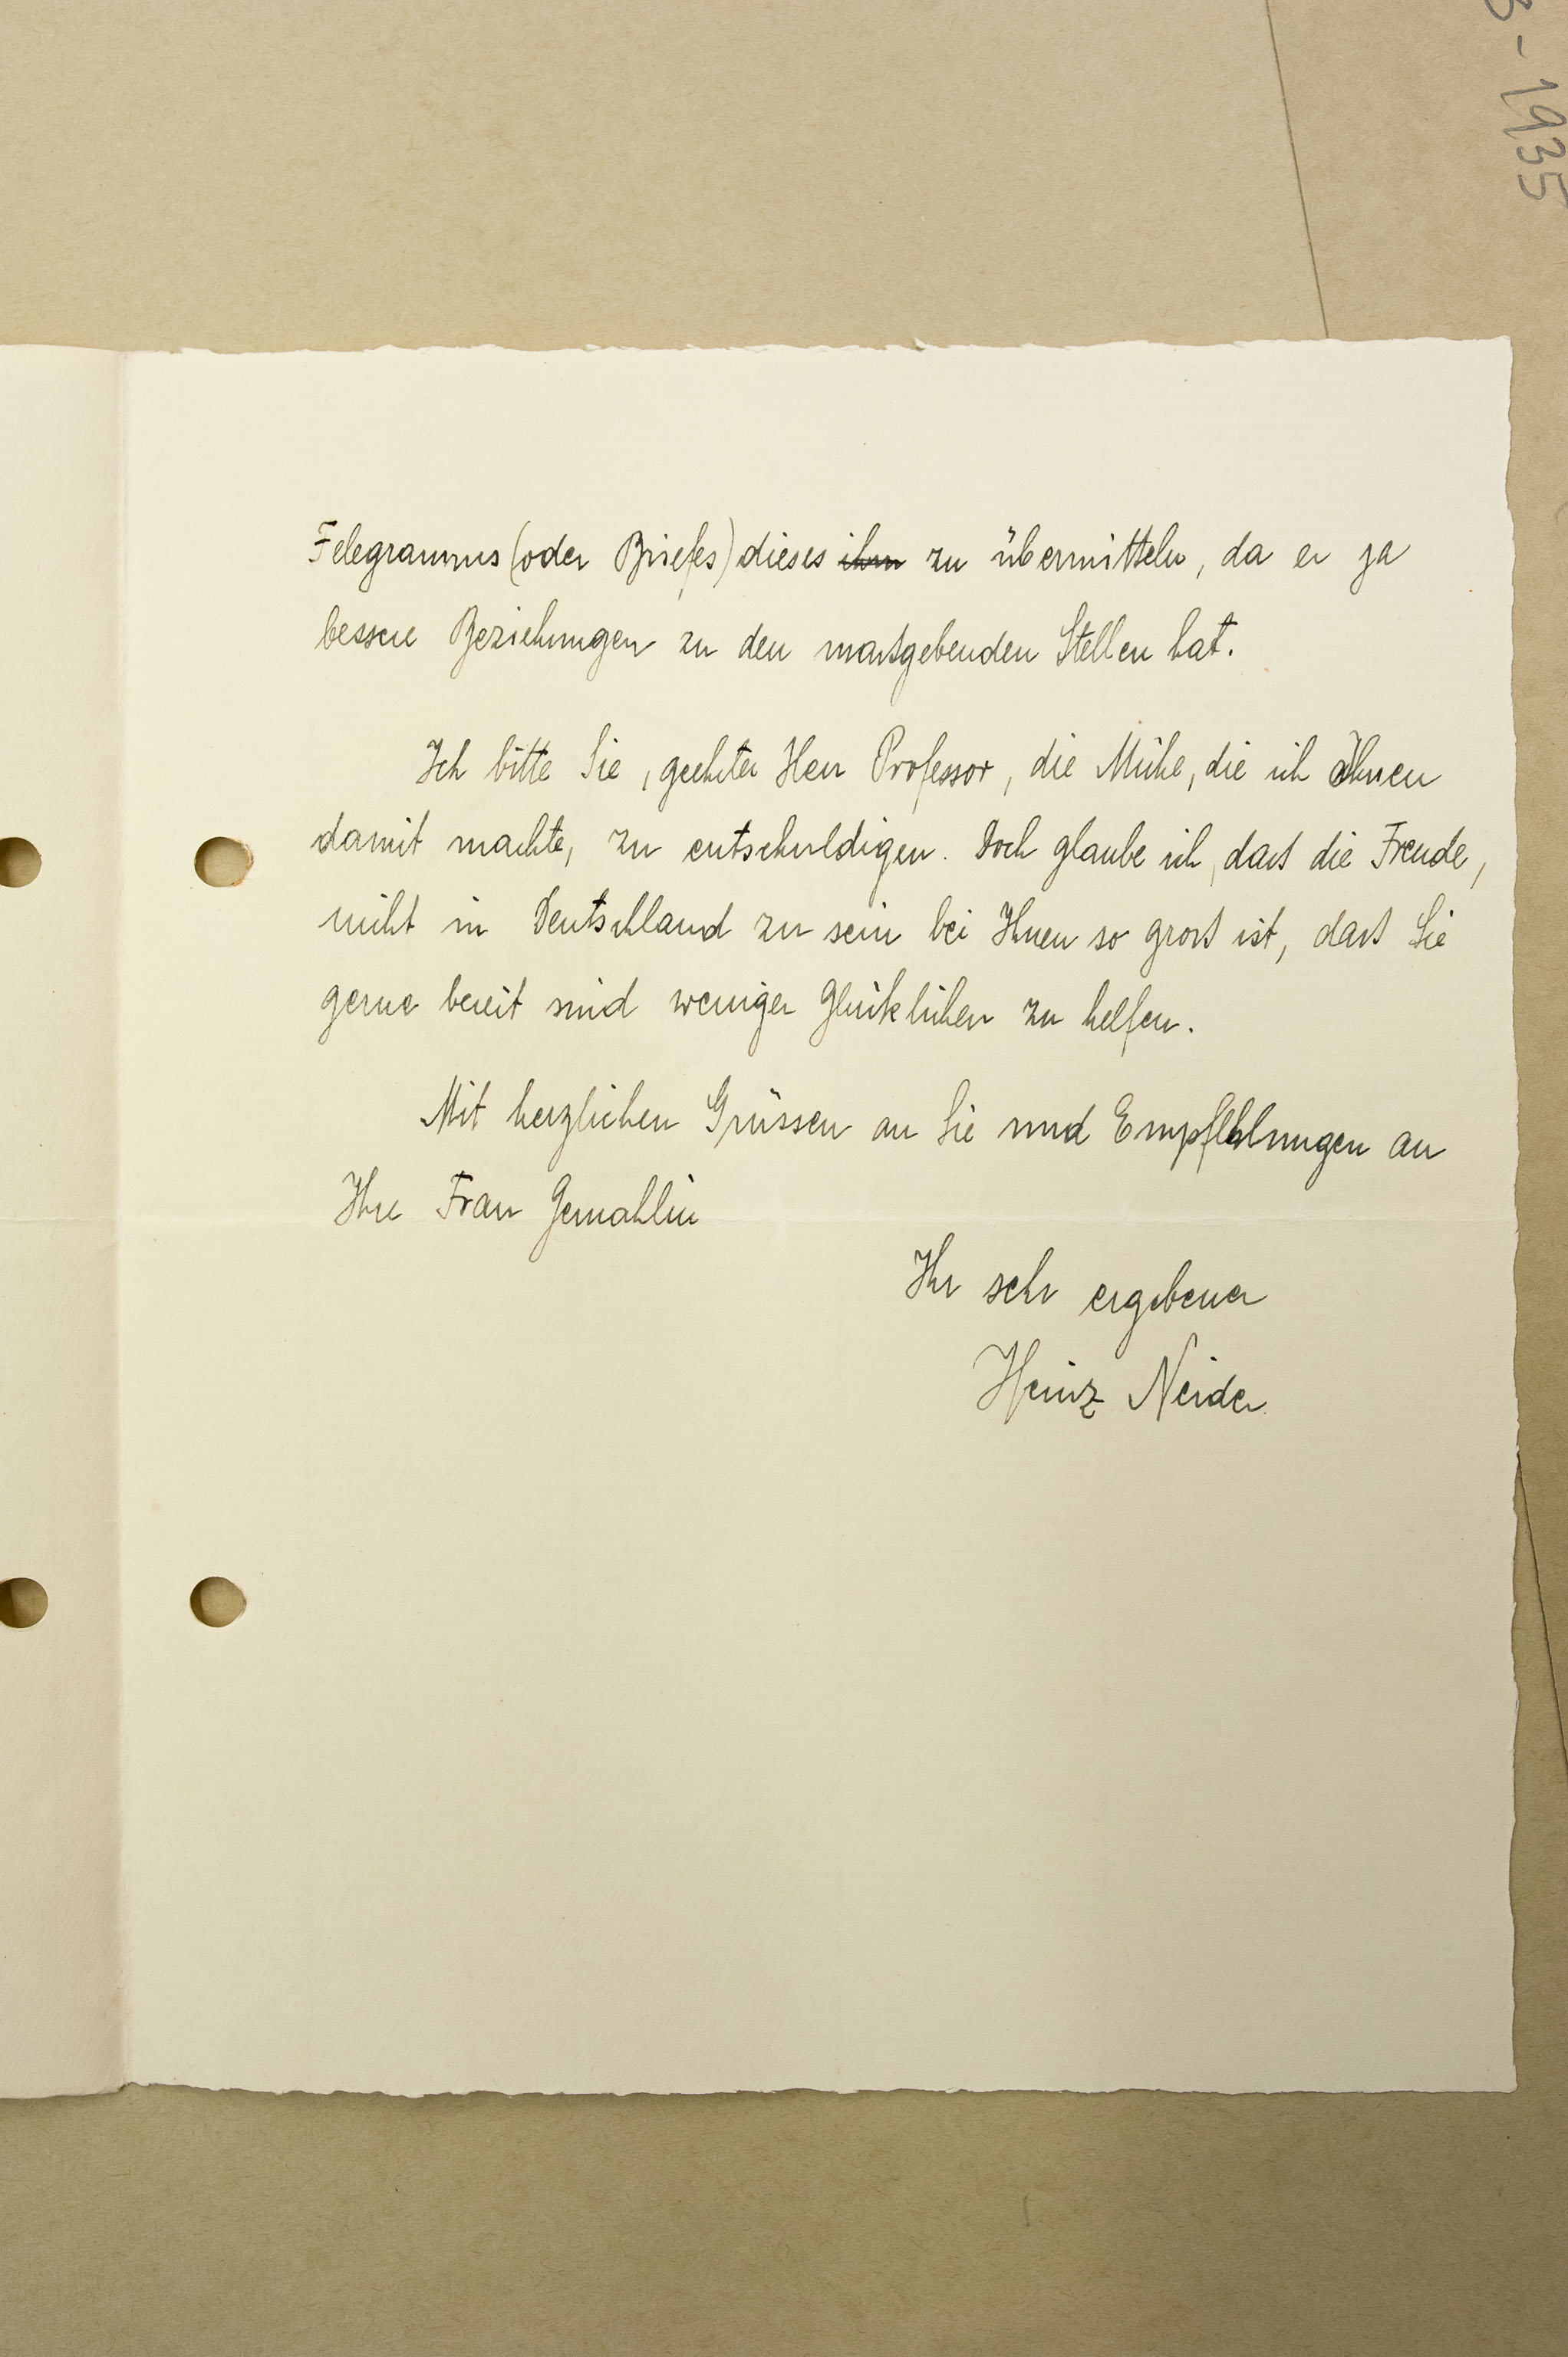 3-1935
Telegramms (oder Briefes) dieses ihm zu übermitteln, da er ja
bessere Beziehungen zu den maßgebenden Stellen hat.
Ich bitte Sie, geehrter Herr Professor, die Mühe, die ich Ihnen
damit machte, zu entschuldigen. Doch glaube ich, daß die Freude,
nicht in Deutschland zu sein bei Ihnen so groß ist, daß Sie
gerne bereit sind weniger Glücklichen zu helfen.
Mit herzlichen Grüssen an Sie und Empfehlungen an
Ihre Frau Gemahlin
Ihr sehr ergebener
Heinz Neider